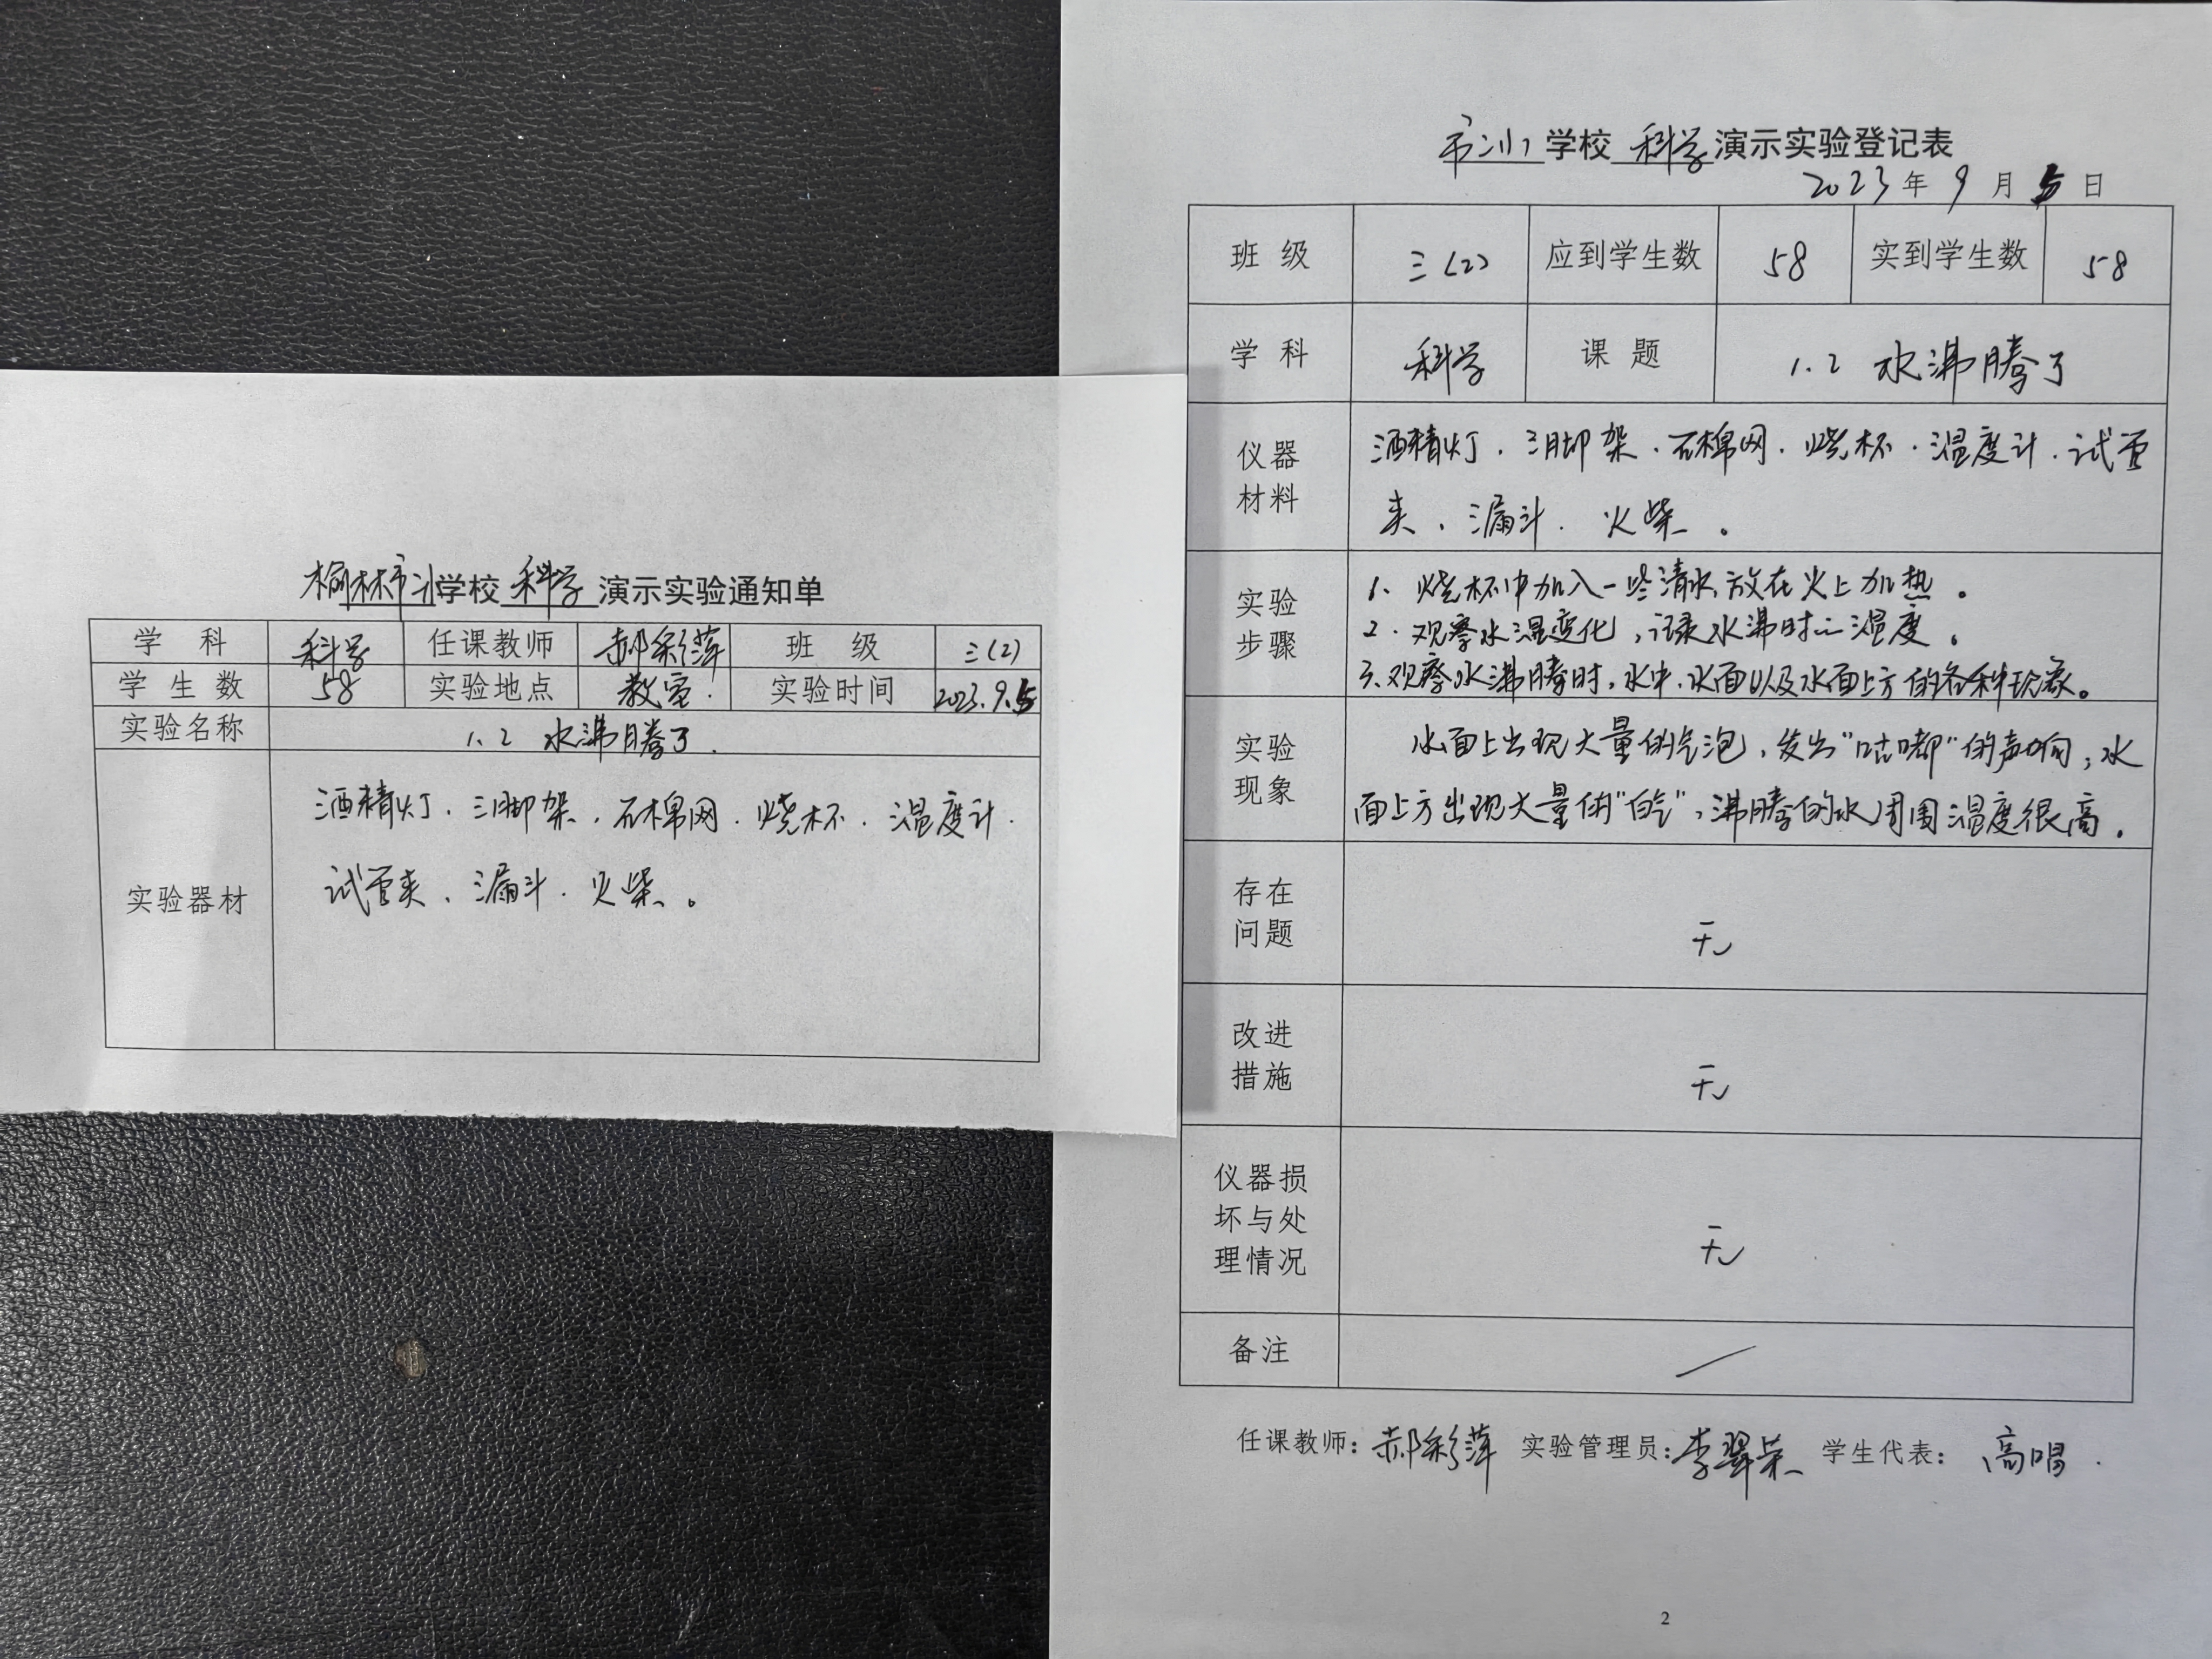 榆林市 学校 科学 演示实验通知单
学科 科学 任课教师 郝彩萍 班级 三(2)
学生数 58 实验地点 教室. 实验时间 2023.9.5
实验名称 1.2 水沸腾了.
酒精灯. 三脚架. 石棉网. 烧杯. 温度计.
试管夹、漏斗. 火柴。
实验器材
学校 科学 演示实验登记表
2023年9月5日
班级 三(2) 应到学生数 58 实到学生数 58
学科 科学 课题 1.2 水沸腾了
仪器
材料
酒精灯. 三脚架. 石棉网. 烧杯. 温度计. 试管
夹、漏斗. 火柴。
实验
步骤
1、烧杯中加入一些清水,放在火上加热。
2.观察水温变化,记录水沸时的温度。
3、观察水沸腾时,水中、水面以及水面上方的各种现象。
实验
现象
水面上出现大量的气泡,发出“咕嘟”的声响,水
面上方出现大量的“白气”,沸腾的水周围温度很高.
存在
问题
无
改进
措施
无
仪器损
坏与处
理情况
无
备注 /
任课教师:郝彩萍 实验管理员:李翠荣 学生代表:高唱.
2